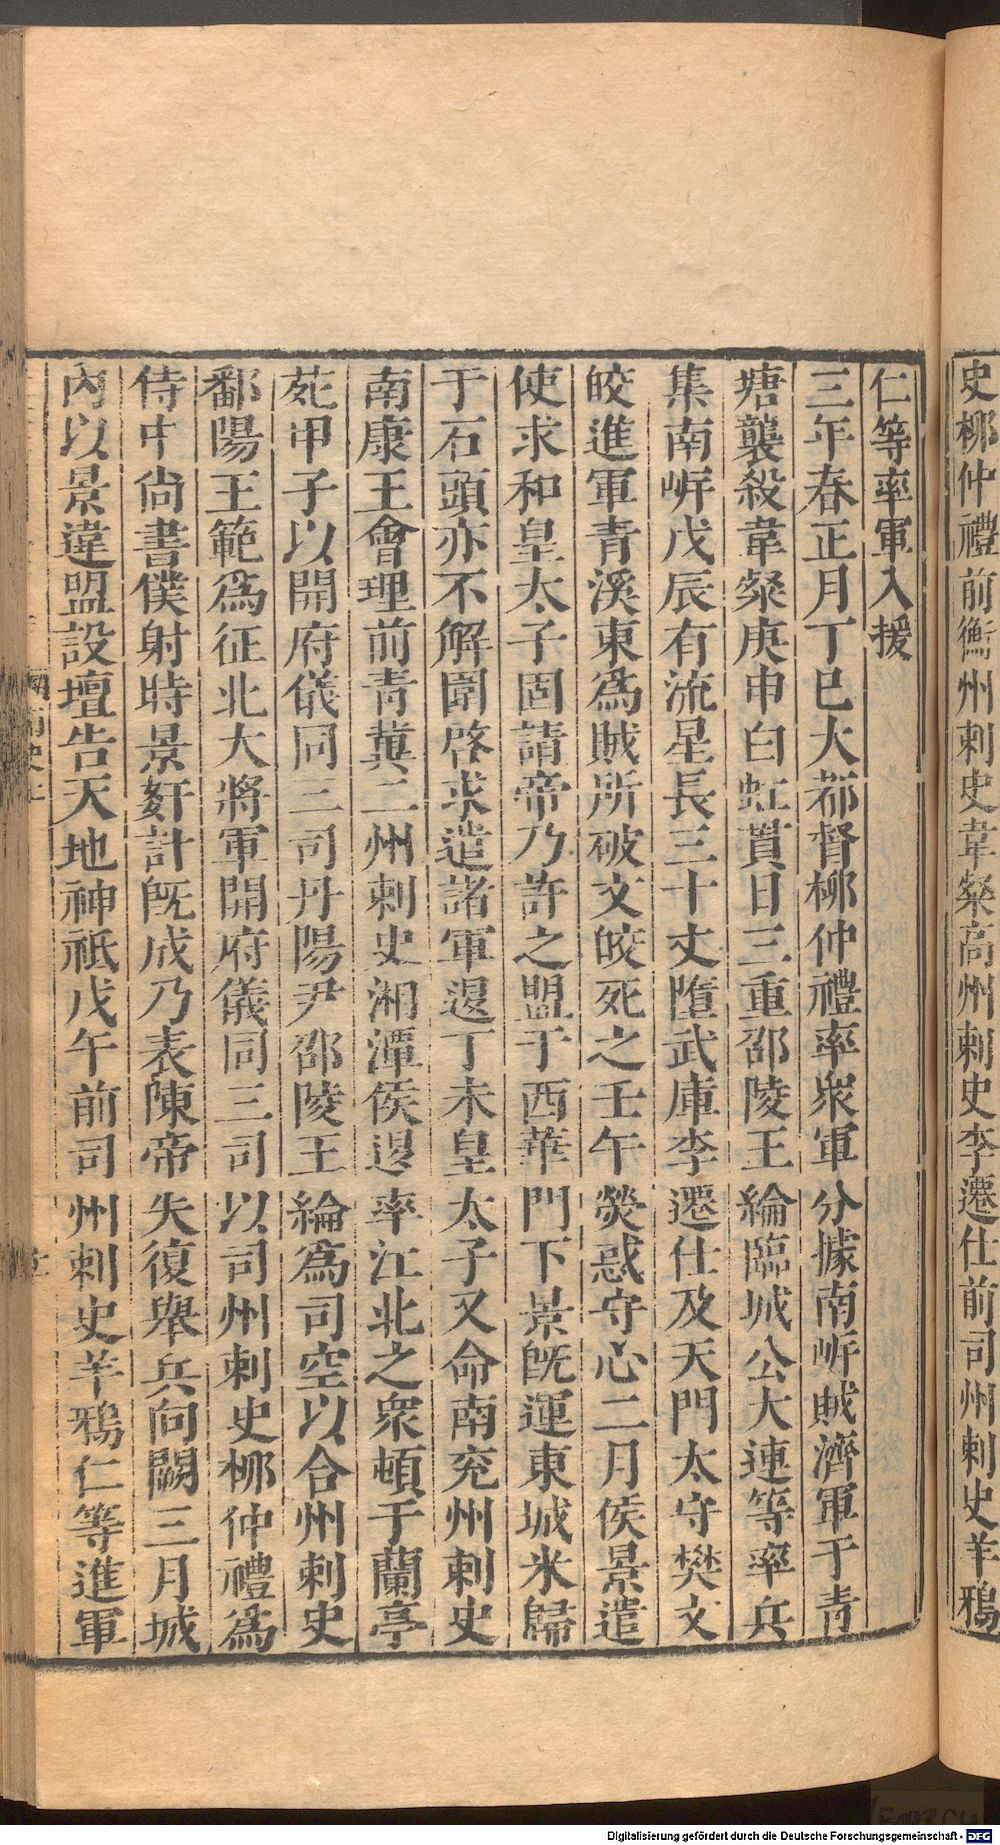 史柳仲禮前衡州刺史韋粲高州刺史李遷仕前司州刺史羊鴉
仁等率軍入援
三年春正月丁巳大都督柳仲禮率衆軍分據南㟁賊濟軍于青
塘襲殺韋粲庚申白虹貫日三重邵陵王綸臨城公大連等率兵
集南㟁戊辰有流星長三十丈墮武庫李遷仕及天門太守樊文
皎進軍青溪東爲賊所破文皎死之壬午熒惑守心二月侯景遣
使求和皇太子固請帝乃許之盟于西華門下景旣運東城米歸
于石頭亦不解圍啓求遣諸軍退丁未皇太子又命南兖州刺史
南康王會理前青冀二州刺史湘潭侯退率江北之衆頓于蘭亭
苑甲子以開府儀同三司丹陽尹邵陵王綸爲司空以合州刺史
鄱陽王範爲征北大將軍開府儀同三司以司州刺史柳仲禮爲
侍中尚書僕射時景姧計旣成乃表陳帝失復舉兵向闕三月城
內以景違盟設壇告天地神祇戊午前司州刺史羊鴉仁等進軍
南史
Digitalisierung gefördert durch die Deutsche Forschungsgemeinschaft - DFG